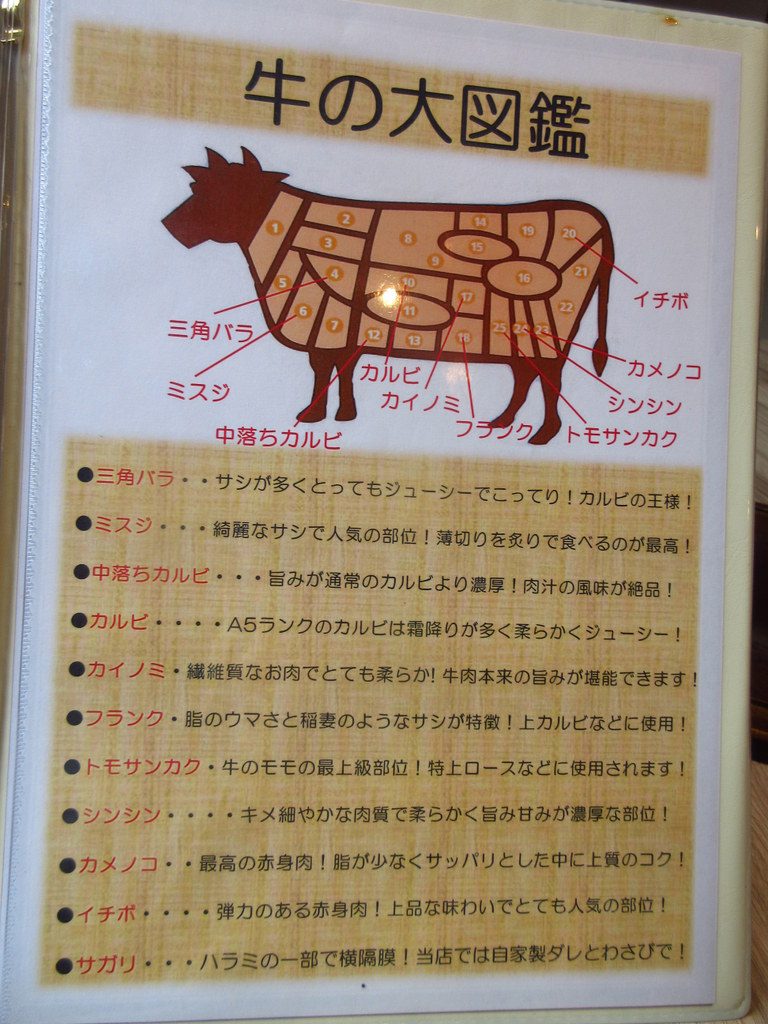 牛の大図鑑
1
2
3
4
5
6
7
8
9
10
11
12
13
14
15
16
17
18
19
20
21
22
23
24
25
イチボ
三角バラ
カメノコ
カルビ
ミスジ
カイノミ
シンシン
中落ちカルビ
フランク
トモサンカク
●三角バラ・・サシが多くとってもジューシーでこってり！カルビの王様！
●ミスジ・・・綺麗なサシで人気の部位！薄切りを炙りで食べるのが最高！
●中落ちカルビ・・・旨みが通常のカルビより濃厚！肉汁の風味が絶品！
●カルビ・・・・A5ランクのカルビは霜降りが多く柔らかくジューシー！
●カイノミ・繊維質なお肉でとても柔らか！牛肉本来の旨みが堪能できます！
●フランク・脂のウマさと稲妻のようなサシが特徴！上カルビなどに使用！
●トモサンカク・牛のモモの最上級部位！特上ロースなどに使用されます！
●シンシン・・・・キメ細やかな肉質で柔らかく旨み甘みが濃厚な部位！
●カメノコ・・最高の赤身肉！脂が少なくサッパリとした中に上質のコク！
●イチボ・・・・弾力のある赤身肉！上品な味わいでとても人気の部位！
●サガリ・・・ハラミの一部で横隔膜！当店では自家製ダレとわさびで！